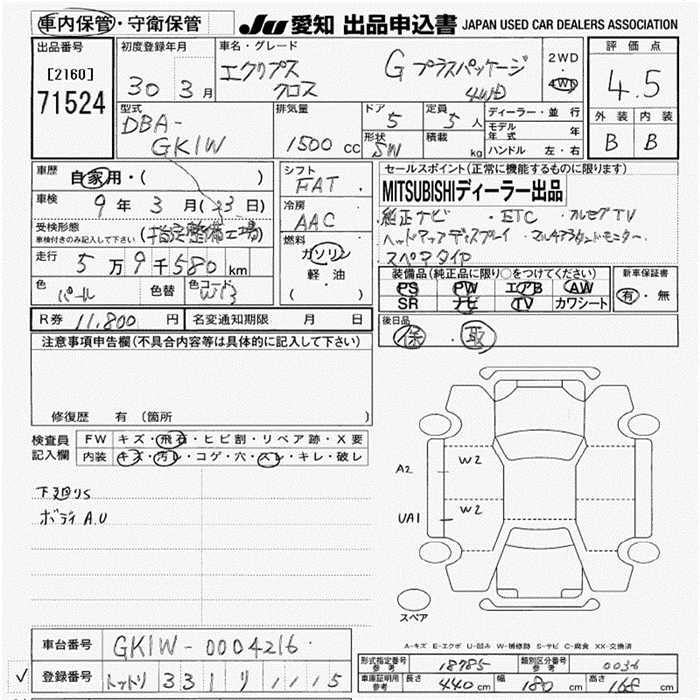 車内保管・守衛保管 JU 愛知 出品申込書 JAPAN USED CAR DEALERS ASSOCIATION
出品番号 [2160] 71524
初度登録年月 30 3月
車名・グレード エクリプス クロス G プラスパッケージ 4WD
2WD 4WD
評価点 4.5
外装 内装
B B
型式 DBA-GK1W
排気量 1500 cc
ドア 5 定員 5人
形状 SW 積載 kg
ディーラー・並行
モデル年式 年
ハンドル 左・右
車歴 自家用・( )
車検 9年 3月 (23日)
受検形態 車検付きのみ記入して下さい (指定整備工場)
走行 5万9千580km
色 パール 色替 色コード W13
シフト FAT
冷房 AAC
燃料 ガソリン 軽油 ( ・ )
セールスポイント(正常に機能するものに限ります)
MITSUBISHIディーラー出品
・純正ナビ ・ETC ・フルセグTV
・ヘッドアップディスプレイ ・マルチアラウンドモニター
・スペアタイヤ
装備品(純正品に限り○をつけてください) 新車保証書
PS PW エアB AW
SR ナビ TV カワシート
有・無
後日品 保・取
R券 11,800円 名変通知期限 月 日
注意事項申告欄(不具合内容等は具体的に記入して下さい)
修復歴 有(箇所
検査員記入欄
FW キズ・飛石・ヒビ割・リペア跡・X要
内装 キズ・汚レ・コゲ・穴・スレ・キレ・破レ
下廻りS
ボディA.U
A2 W2
UA1 W2
スペア
A-キズ E-エクボ U-凹み W-補修跡 S-サビ C-腐食 XX-交換済
車台番号 GK1W-0004216
登録番号 トットリ 331 リ 1115
型式指定番号 参考 18785 類別区分番号 参考 0036
車庫証明用 参考 長さ 440cm 幅 180cm 高さ 168cm